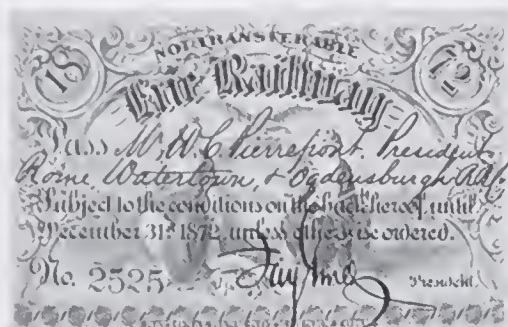 NOT TRANSFERABLE
18 72
Erie Railway
Pass M. W. C. Pierrepont. President
Rome, Watertown, & Ogdensburgh
Subject to the conditions on the back hereof, until
December 31st 1872, unless otherwise ordered.
No. 2525 Jay Gould President.